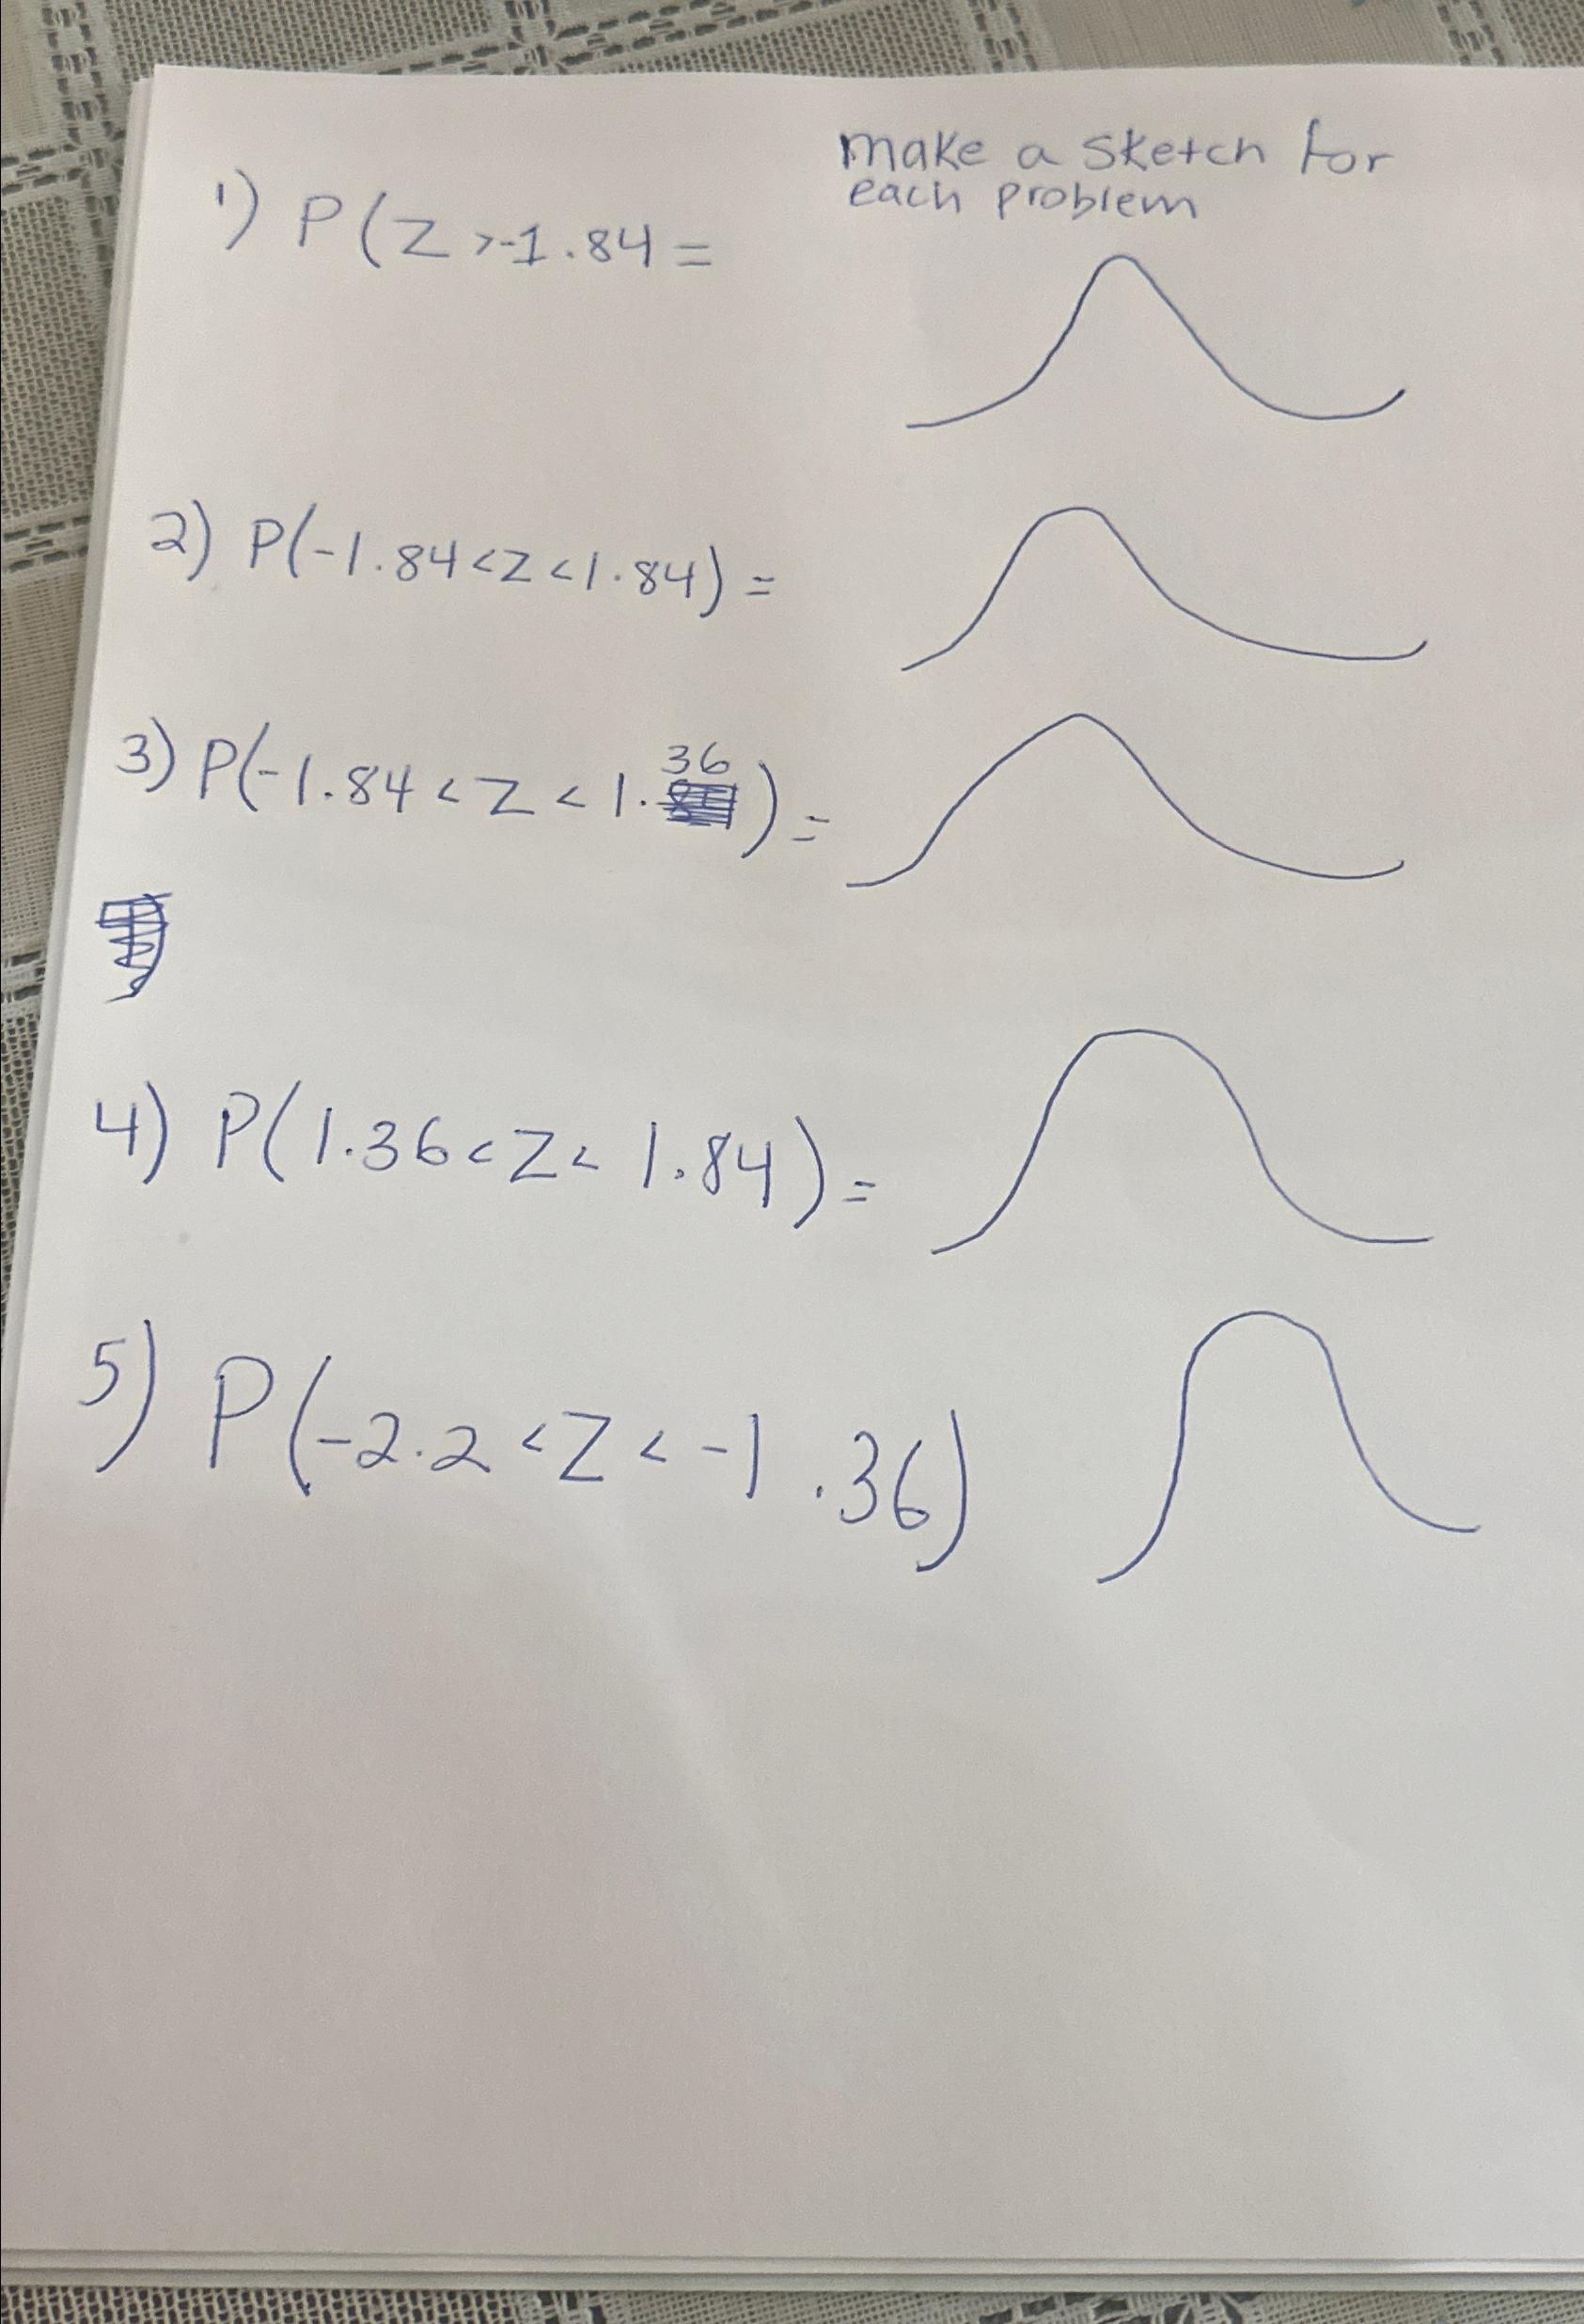 make a sketch for
each problem
1) P(Z >-1.84 =
2) P(-1.84<Z<1.84) =
3) P(-1.84 < Z < 1.36) =
4) P(1.36<Z< 1.84) =
5) P(-2.2 <Z < -1.36)